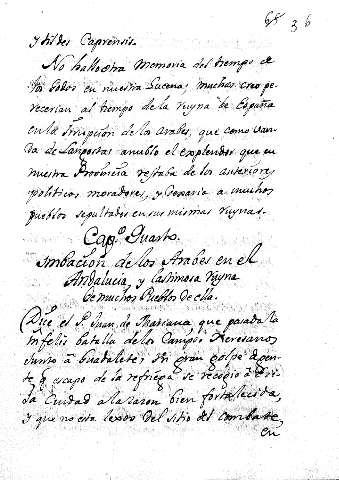 36
y tildes Caprensis.
No hallo otra Memoria del tiempo de
los Godos en nuestra Lucena; muchas creo pe
recerian al tiempo de la ruyna de España
en la Irrupcion de los Arabes, que como van
da de Langostas anublo el explendor que en
nuestra Provincia restaba de los anteriores
politicos moradores, y dexaria a muchos
pueblos sepultados en sus mismas ruynas.
Capº. Quarto.
Imbacion de los Arabes en el
Andalucia, y lastimosa ruyna
de muchos Pueblos de ella.
Dice el P. Juan de Mariana que pasada la
infeliz batalla de los Campos Xeresanos
junto à Guadalete, un gran golpe de gen
te q escapo de la refriega se recogio à
Ciudad a la razon bien fortalecida,
y que no esta lexos del sitio del combatte,
en